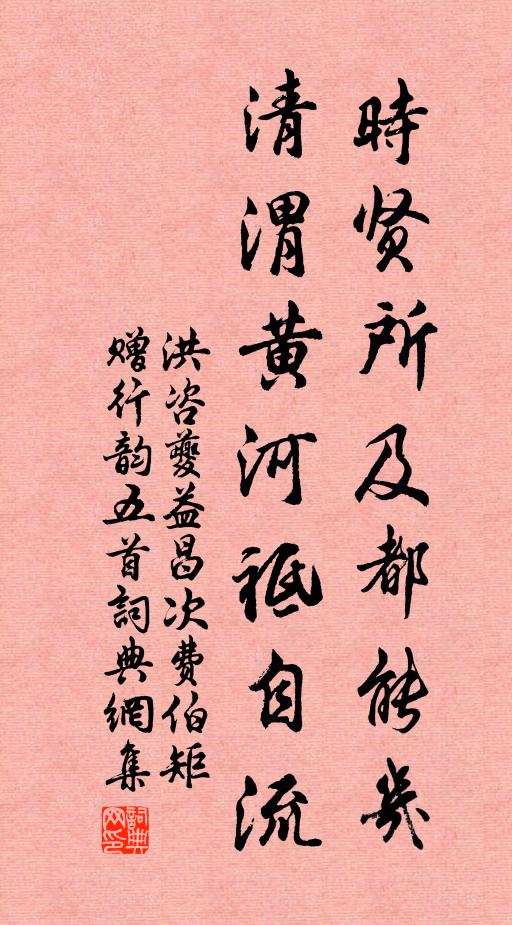 時贤所及都能幾
清渭黄河祗自流
洪咨夔益昌次费伯矩
赠行韵五首詞典網集
詞典网印